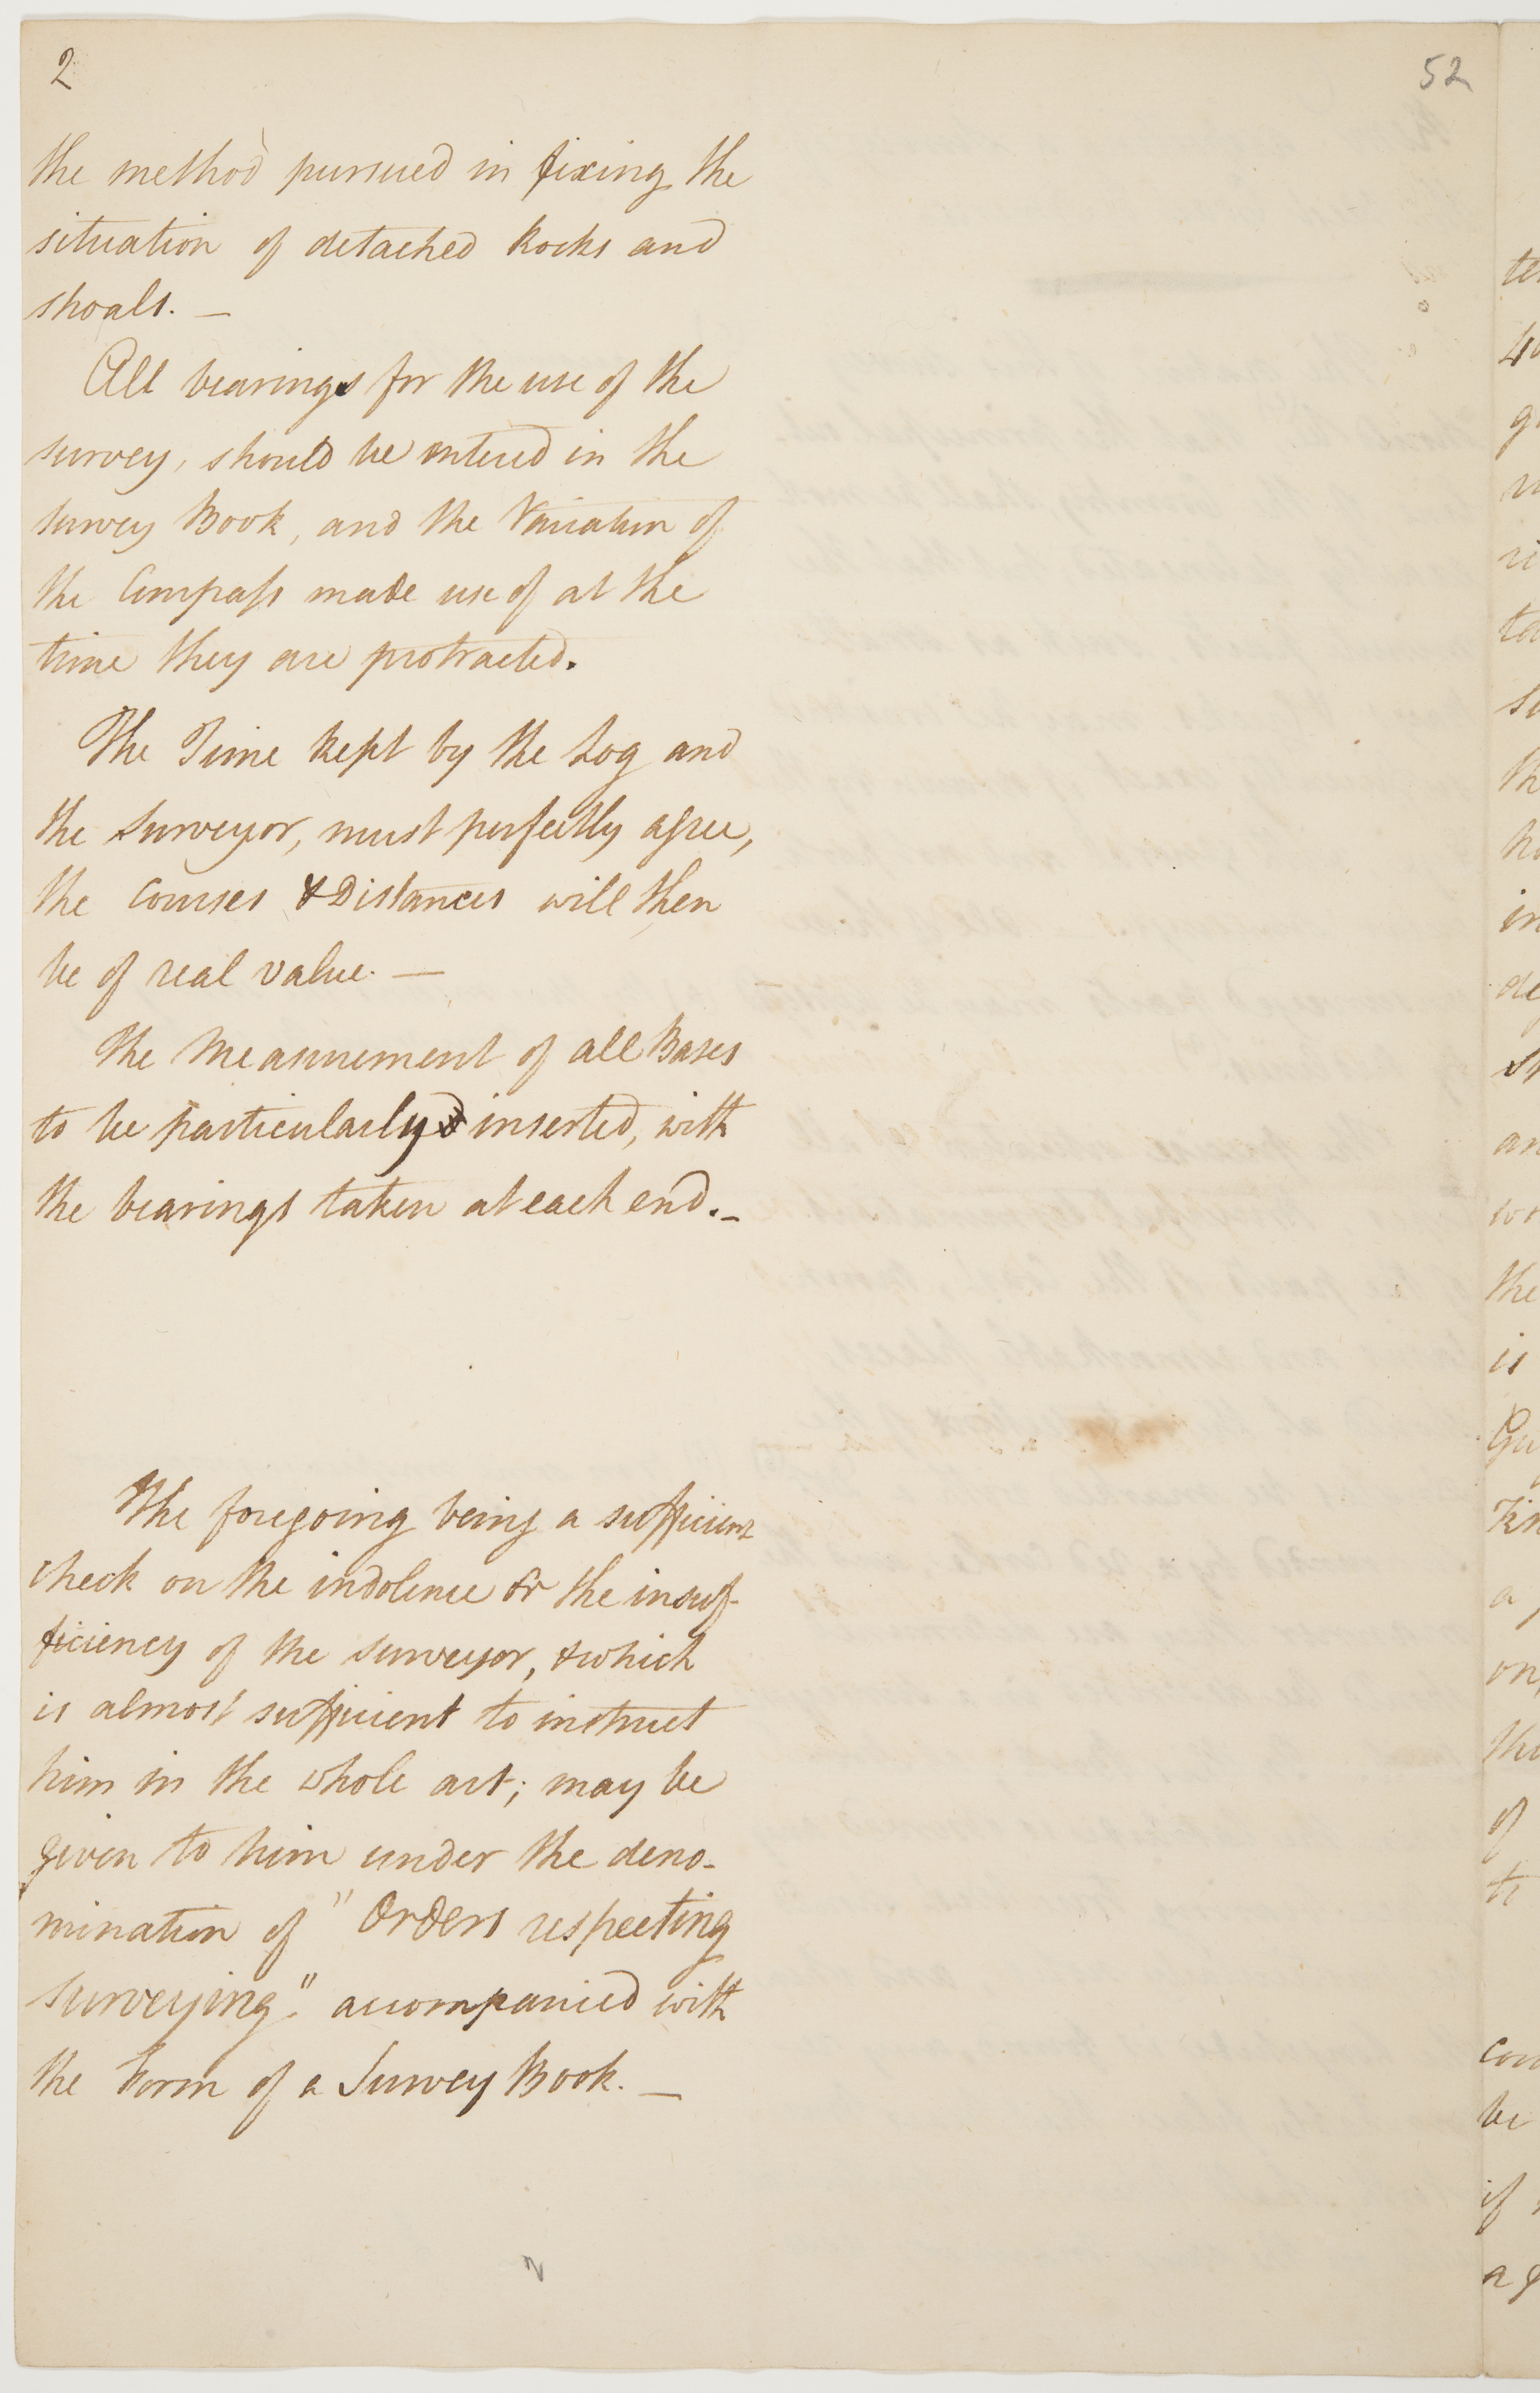 2
52
the method pursued in fixing the
situation of detached Rocks and
shoals. —
All bearings for the use of the
survey, should be entered in the
survey Book, and the Variation of
the Compass made use of at the
time they are protracted.
The Time kept by the Log and
the Surveyor, must perfectly agree,
the Courses & Distances will then
be of real value. —
The Measurement of all Bases
to be particularly inserted, with
the bearings taken at each end. _
The foregoing being a sufficient
check on the indolence or the insuf-
ficiency of the surveyor, & which
is almost sufficient to instruct
him in the whole art; may be
given to him under the deno-
mination of "Orders respecting
surveying". accompanied with
the Form of a Survey Book. —